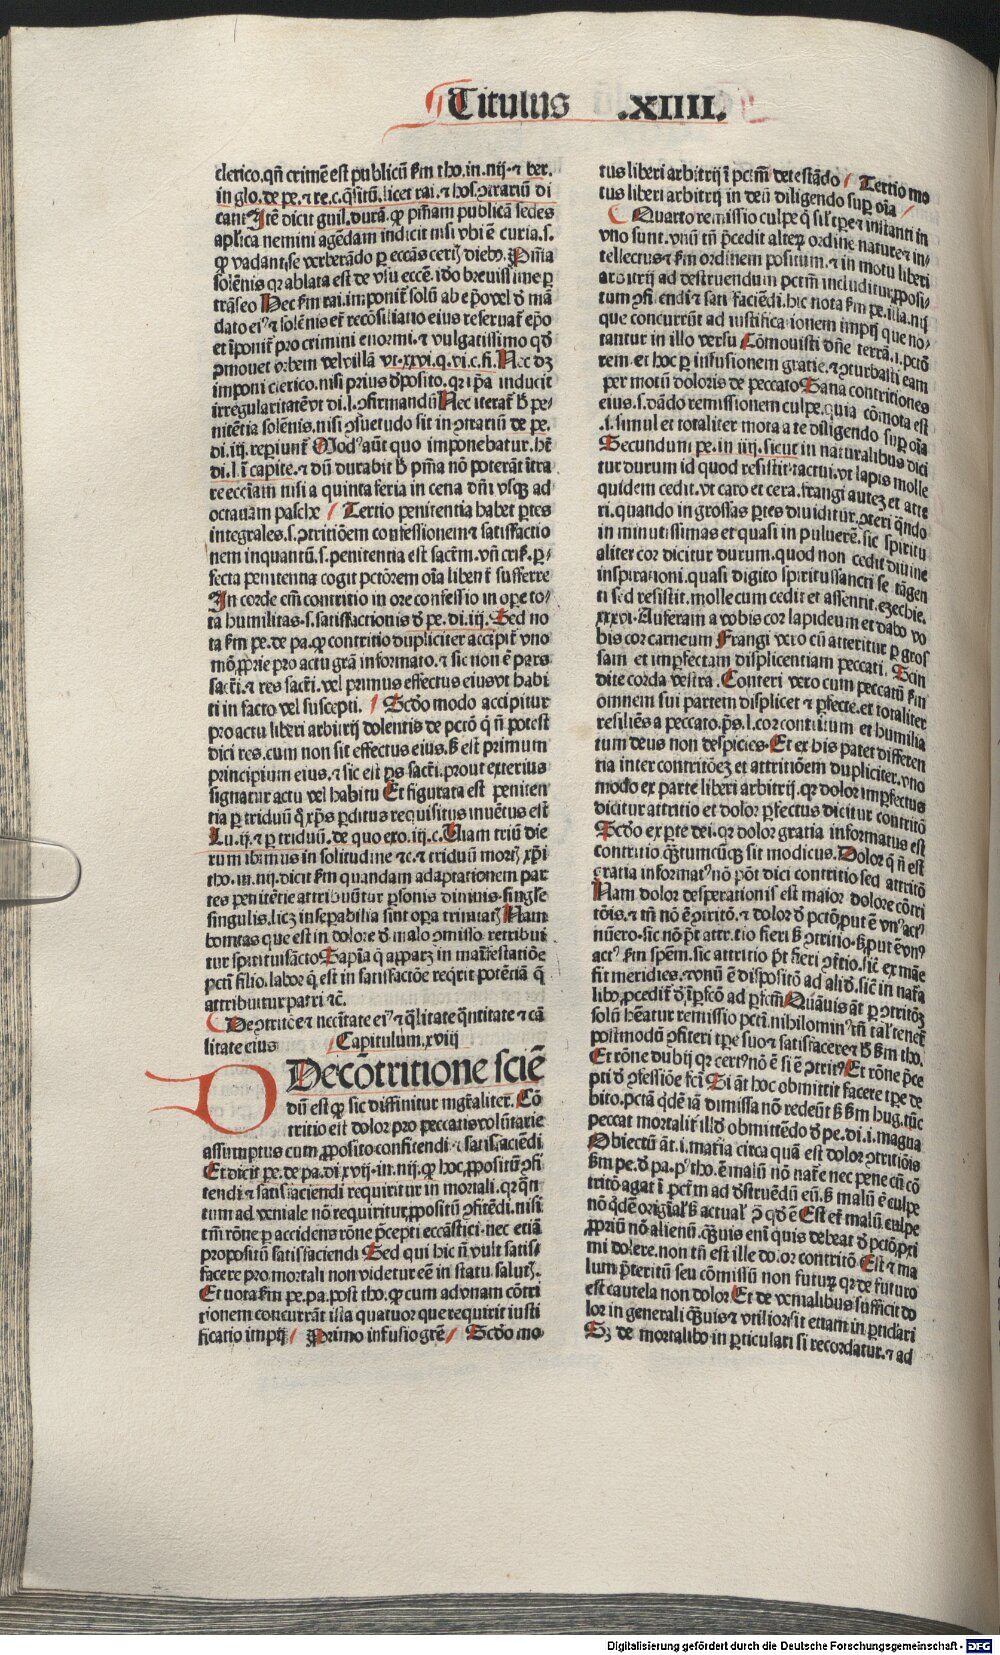 Titulus .XIIII.
clerico. qñ crimẽ est publicũ ẜm tho. in. iiij. ⁊ ber.
in glo. de pe. ⁊ re. c. q̃situ. licet rai. ⁊ hos. ꝯtrariũ di
cant Itẽ dicit guil. durã. ꝙ pñiam publicã sedes
aplica nemini agẽdam indicit nisi vbi ẽ curia. s.
ꝙ vadant se verberãdo ꝑ ecclas certꝭ diebꝰ. Pñia
solẽnis qꝛ ablata est de vsu ecce. iõo breuissime ꝑ
trãseo Hec ẜm rai. imponit᷑ solũ ab epõ vel ð mã
dato eiꝰ ⁊ solẽnis et᷑ recõsiliatio eius reseruat᷑ epõ
et ĩponit᷑ pro crimini enormi. ⁊ vulgatissimo qð
ꝯmouet orbem vel villã vt. xxvi. q. vi. c. fi. Nec dꝫ
imponi clerico. nisi prius ðposito. qꝛ ip̃a inducit
irregularitatẽ vt di. l. ꝯfirmandũ Nec iterat᷑ h̃ pe-
nitẽtia solẽnis. nisi ꝯsuetudo sit in ꝯtrariũ de pe.
di. iij. reperiunt᷑ Modꝰ aũt quo imponebatur. ht᷑
di. l ĩ capite. ⁊ dũ durabit h̃ pñia nõ poterãt ĩtra
re ecc̃iam nisi a quinta feria in cena dñi vsqꝫ ad
octauam pasche / Tertio penitentia habet ꝑtes
integrales. s. ꝯtritiõem confessionem ⁊ satisfactio
nem inquantũ. s. penitentia est sac̃tm. vñ cris̃. ꝑ-
fecta penitentia cogit pctõrem oĩa libent᷑ sufferre
In corde eñi contritio in ore confessio in oꝑe to-
ta humilitas. s. satisfactionis ð pe. di. iij. Sed no
ta ẜm pe. de pa. ꝙ contritio dupliciter accipit᷑ vno
mõ ꝓprie pro actu grã informato. ⁊ sic non ẽ pars
sac̃ti. ⁊ res sac̃ti. vel primus effectus eius vt habi
ti in facto vel suscepti. / Scðo modo accipitur
pro actu liberi arbitrij dolentis de pctõ q̃ ñ potest
dici res. cum non sit effectus eius. ẜ est primum
principium eius. ⁊ sic est ꝑs sac̃ti. prout exterius
signatur actu vel habitu Et figurata est peniten
tia ꝑ triduũ q̃ xp̃s ꝑditus requisitus inuẽtus est
Lu. ij. ⁊ ꝑ triduũ. de quo exo. iij. c. Uiam triũ die
rum ibimus in solitudine ⁊c. ⁊ triduũ mortꝭ xp̃i
tho. in. iiij. dicit ẜm quandam adaptationem par
tes penitẽtie attribuũtur ꝑsonis diuinis. singl̃e
singulis. licꝫ inseparabilia sint oꝑa trinitatꝭ Nam
bonitas que est in dolore ð malo ꝯmisso. retribui
tur spirituisãcto Sapĩa q̃ apparꝫ in manifestatiõe
pctĩ filio. labor q̃ est in satisfactiõe reqͥrit potẽtiã q̃
attribuitur patri ⁊c.
De ꝯtritiõe ⁊ necc̃itate eiꝰ ⁊ q̃litate q̃ntitate ⁊ cã
litate eius / Capitulum. xviij
DE cõtritione sciẽ
dũ est ꝙ sic diffinitur mgr̃aliter. Cõ
tritio est dolor pro peccatis volũtarie
assumptus cum ꝓposito confitendi ⁊ satisfaciẽdi
Et dicit pe. de pa. di xvij. in. iiij. ꝙ hoc ꝓpositũ ꝯfi
tendi ⁊ satisfaciendi requiritur in mortali. qꝛ q̃n
tum ad veniale nõ requiritur ꝓpositũ ꝯfitẽdi. nisi
tm̃ rõne ꝑ accidens rõne p̃cepti eccl̃astici. nec etiã
propositũ satisfaciendi Sed qui hic ñ vult satis-
facere pro mortali non videtur eẽ in statu salutꝭ.
Et nota ẜm pe. pa. post tho. ꝙ cum adunam cõtri
tionem concurrãt ista quatuor que requirit iusti
ficatio impij / Primo infusio grẽ / Scðo mo
tus liberi arbitrij ĩ pctm̃ detestãdo / Tertio mo
tus liberi arbitrij in deũ diligendo suꝑ oĩa /
Quarto remissio culpe q̃ sil᷑ tꝑe ⁊ instanti in
vno sunt. vnũ tñ p̃cedit alteꝝ ordine nature ⁊ in-
tellectus ⁊ ẜm ordinem positum. ⁊ in motu liberi
arbitrij ad destruendum pctm̃ includitur ꝓposi-
tum ꝯfitendi ⁊ satisfaciẽdi. hic nota ẜm pe. illa. iiij
que concurrũt ad iustificationem impij que no-
tantur in illo versu Cõmouisti dñe terrã. i. pctõ
rem. et hoc ꝑ infusionem gratie. ⁊ ꝯturbasti eam
per motũ doloris de peccato Sana contritiones
eius. s. dãdo remissionem culpe. quia cõmota est
.s. simul et totaliter mota a te diligendo suꝑ oĩa
Secundum pe. in iiij. sicut in naturalibus dici
tur durum id quod resistit tactui. vt lapis molle
quidem cedit. vt caro et cera. frangi autẽ et atte
ri. quando in grossas ꝑtes diuiditur. ꝯteri q̃ndo
in minutissimas et quasi in puluerẽ. sic spiritu
aliter cor dicitur durum. quod non cedit diuine
inspirationi. quasi digito spiritussancti se tãgen
ti sed resistit. molle cum cedit et assentit. ezechie.
xxxvi. Auferam a vobis cor lapideum et dabo vo
bis cor carneum Frangi vero cũ atteritur ꝑ gros
sam et imꝑfectam displicentiam peccati. Scin
dite corda vestra. Conteri vero cum peccatũ ẜm
omnem sui partem displicet ⁊ ꝑfecte. et totaliter
resiliẽs a peccato. ps. l. cor contritum et humilia
tum deus non despicies. Et ex his patet differen
tia inter contritiõeꝫ et attritiõem dupliciter. vno
modo ex parte liberi arbitrij. qꝛ dolor imꝑfectus
dicitur attritio et dolor ꝑfectus dicitur contritõ
Scðo ex ꝑte dei. qꝛ dolor gratia informatus est
contritio. q̃tumcũqꝫ sit modicus. Dolor q̃ ñ est
gratia informatꝰ nõ põt dici contritio sed attritõ
Nam dolor desperationis est maior dolore cõtri
tõis. ⁊ tñ nõ ẽ ꝯtritõ. ⁊ dolor ð pctõ put ẽ vnꝰ actꝰ
nũero. sic nõ p̃t attritio fieri ẜ ꝯtritio. ẜ put ẽ vnꝰ
actꝰ ẜm spẽm. sic attritio p̃t fieri ꝯtrtio. sic̃ ex mãe
fit meridies. ⁊ vnũ ẽ dispositõ ad aliõ. sic̃ in natã
libꝰ. ꝓcedit᷑ ð ĩꝑfcõ ad ꝑfcm̃ Quãuis ãt ꝑ ꝯtritõꝫ
solũ heãtur remissio pctĩ. nihilominꝰ tñ talꝭ tenet᷑
postmodũ ꝯfiteri tꝑe suo ⁊ satisfacere ⁊ h̃ ẜm tho.
Et rõne dubij qꝛ certꝰ nõ ẽ si ẽ ꝯtritꝰ Et rõne p̃ce
pti ð ꝯfessiõe fcĩ Si ãt hoc obmittit facere tꝑe de
bito. pctã qͥdẽ iã dimissa nõ redeũt ẜ ẜm hug. tũc
peccat mortalit᷑ illð obmittẽdo ð pe. di. i. magna
Obiectũ ãt. i. materia circa quã est dolor ꝯtritiõis
ẜm pe. ð pa. pꝰ tho. ẽ malũ nõ natẽ nec pene cũ cõ
tritõ agat ĩ pctm̃ ad ðstruẽdũ eũ. ẜ malũ ẽ culpe
nõ qͥdẽ origĩal᷑ ẜ actual᷑ ꝓ qð ẽ Est et᷑ malũ culpe
ꝓpriũ nõ alienũ. q̃uis enĩ quis debeat ð pctõ ꝓxi
mi dolere. non tñ est ille dolor contritõ Est ⁊ ma
lum p̃teritũ seu cõmissũ non futuꝝ qꝛ de futuro
est cautela non dolor Et de venialibus sufficit do
lor in generali q̃uis ⁊ vtilior sit etiam in ꝑticlari
Sꝫ de mortalibꝰ in ꝑticulari si recordatur. ⁊ ad
Digitalisierung gefördert durch die Deutsche Forschungsgemeinschaft - DFG